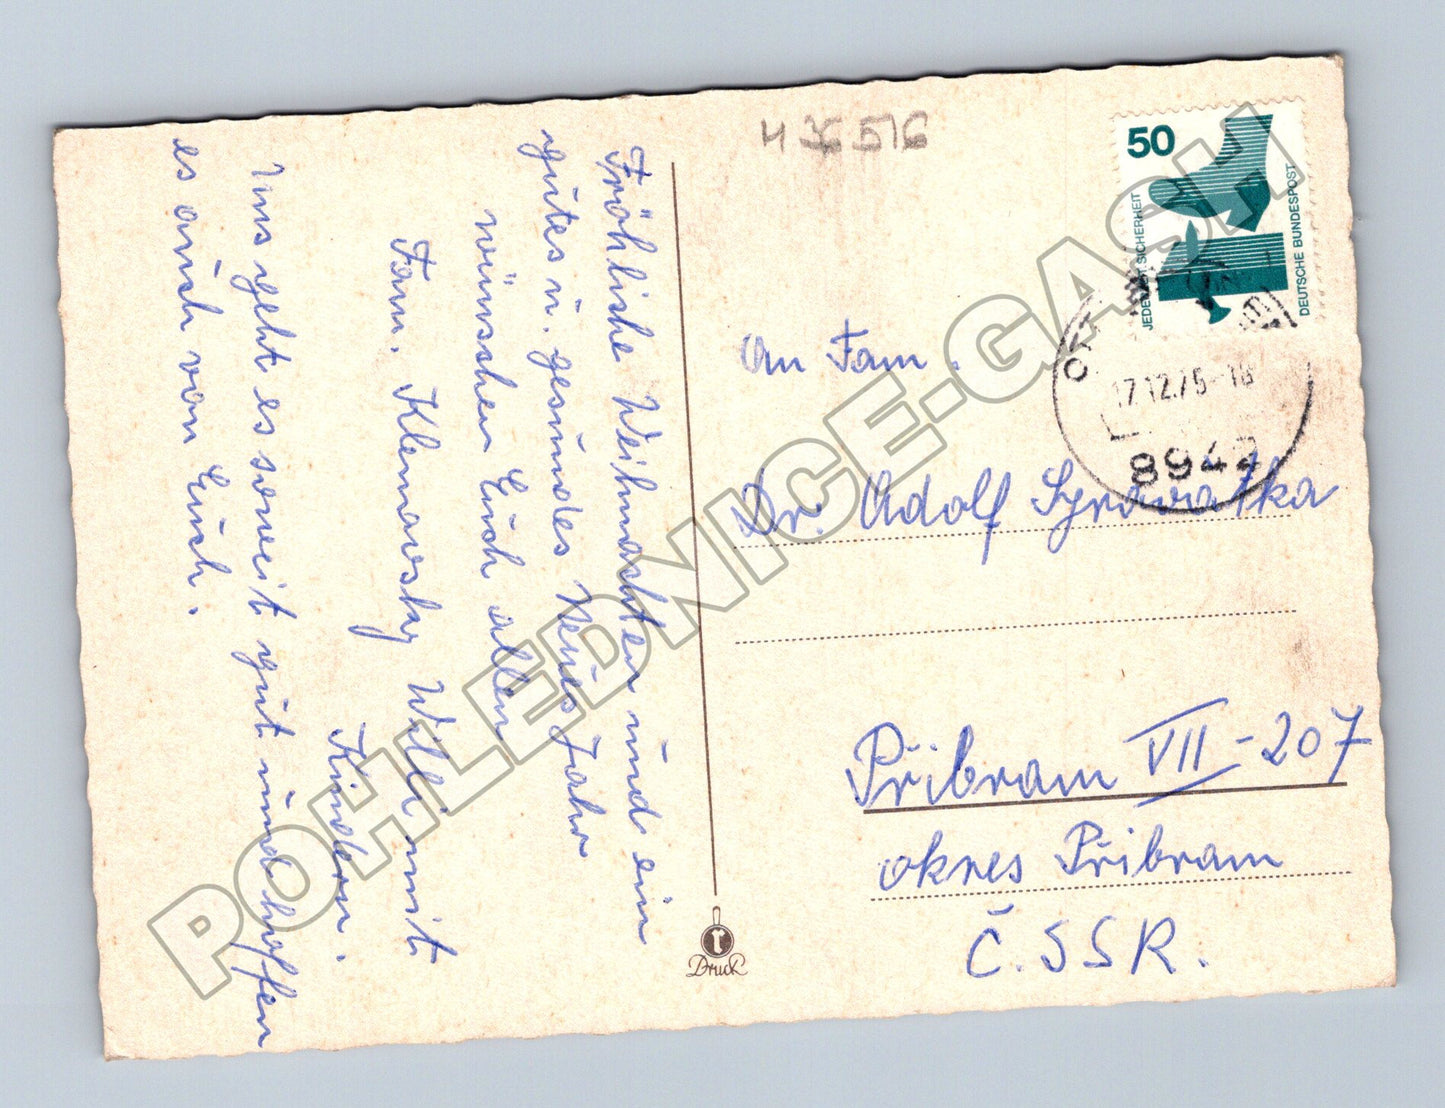 Fröhliche Weihnachten und ein
gutes u. gesundes Neues Jahr
wünschen Euch allen
Fam. Klemarsky Willi mit
Kindern.
Uns geht es soweit gut und hoffen
es auch von Euch.
4 36 516
50
JEDERZEIT SICHERHEIT
DEUTSCHE BUNDESPOST
17.12.75-18
8942
An Fam.
Dr. Adolf Syrovatka
Přibram VII-207
okres Přibram
Č.S.S.R.
Druck
POHLEDNICE-GASH